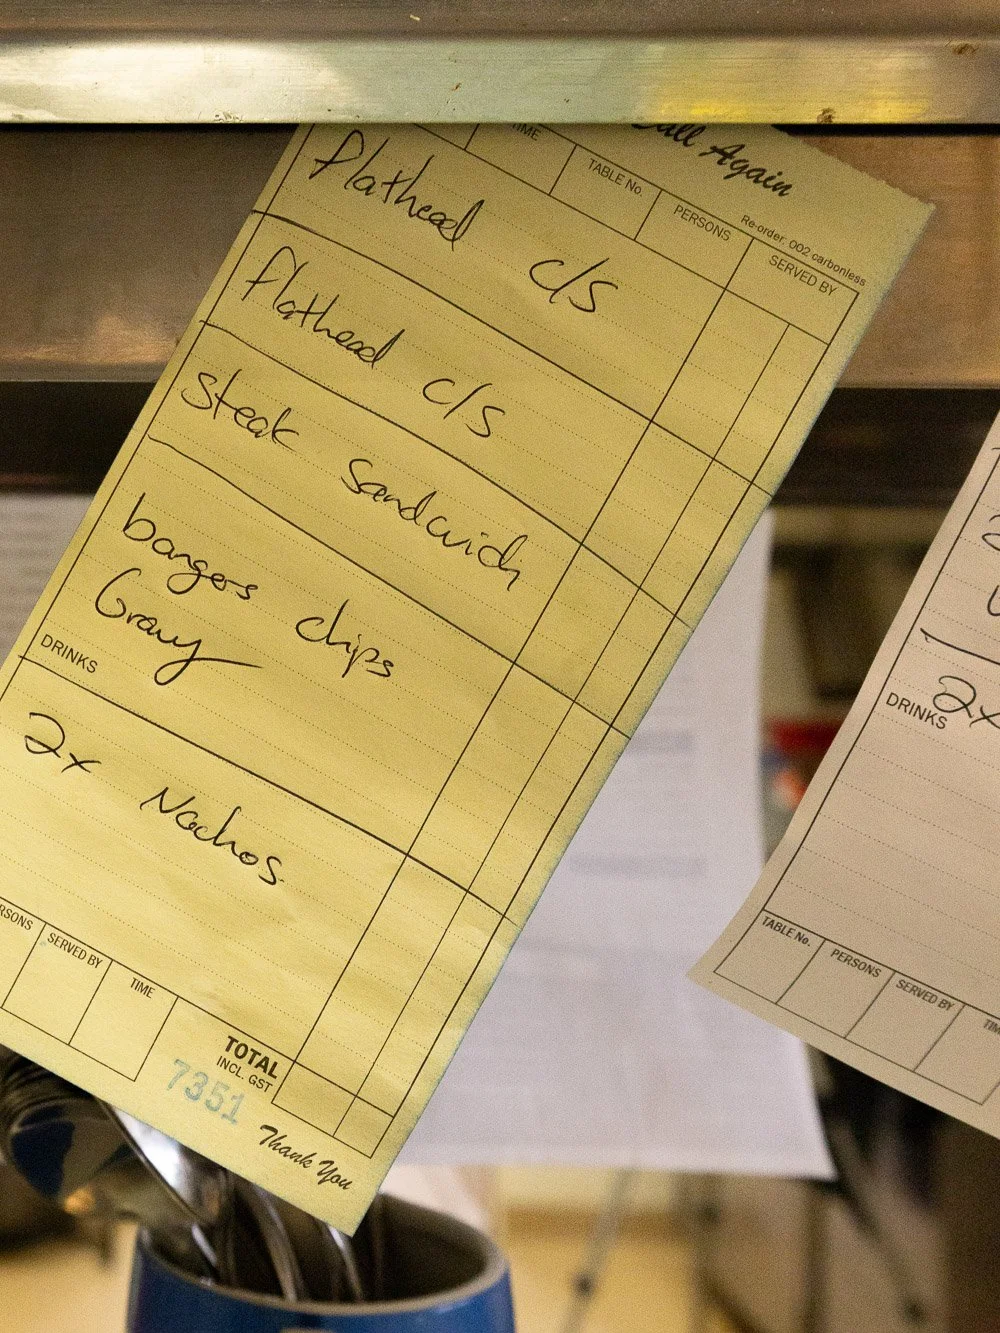 Call Again
Re-order 002 carbonless
TIME TABLE No. PERSONS SERVED BY
flathead c/s
flathead c/s
Steak Sandwich
bangers chips
Gravy
DRINKS
2x Nachos
PERSONS SERVED BY TIME
TOTAL
INCL. GST
7351
Thank You
DRINKS 2x
TABLE No. PERSONS SERVED BY TIME